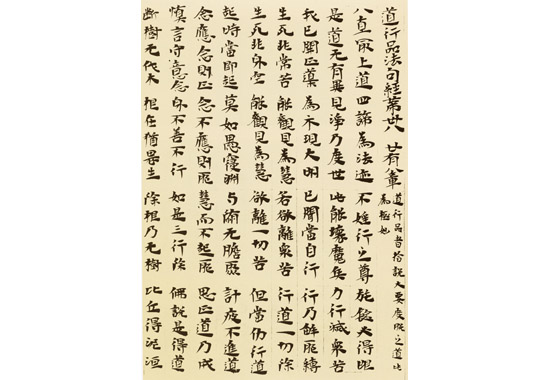 道行品法句經第廿八 廿有八章
道行品者旨說大要度脫之道此
為極也
八直最上道 四諦為法迹 不婬行之尊 施鐙大得眼
是道无有異 見淨乃度世 此能壞魔兵 力行滅衆苦
我已開正道 為示現大明 已聞當自行 行乃解邪縛
生死非常苦 能觀見為慧 若欲離衆苦 行道一切除
生死非身空 能觀見為慧 欲離一切苦 但當仂行道
起時當即起 莫如愚覆淵 与 无瞻聚 計疲不進道
念應念則正 念不應則邪 慧而不起邪 思正道乃成
慎言守意念 身不善不行 如是三行除 佛說是得道
斷樹无伐本 根在猶 生 除根乃无樹 比丘得泥洹